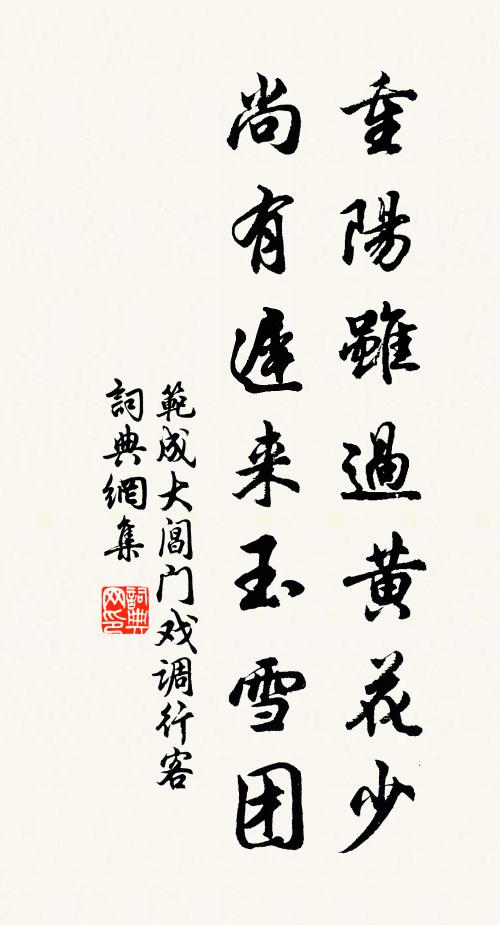 重陽雖過黄花少
尚有遲来玉雪团
範成大閶门戏调行客
詞典網集
詞典网印